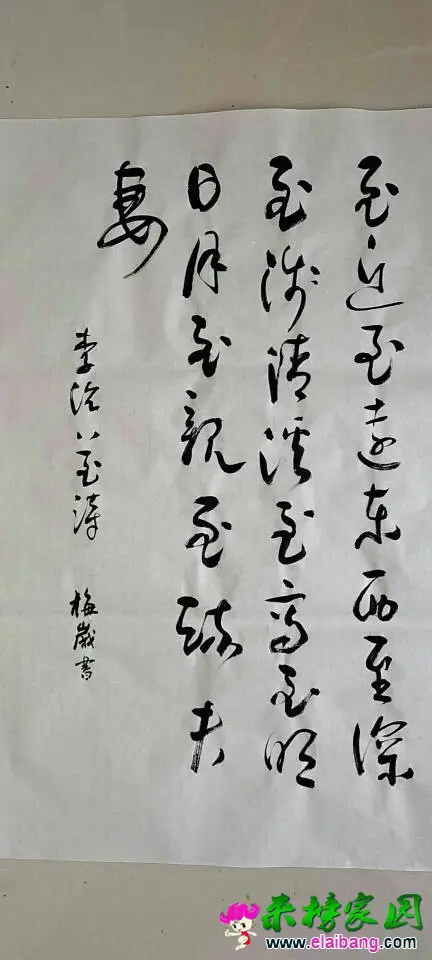 至近至远东西至深
至浅清溪至高至明
日月至亲至疏夫
妻
李冶八至诗
梅岁书
来榜家园
www.elaibang.com